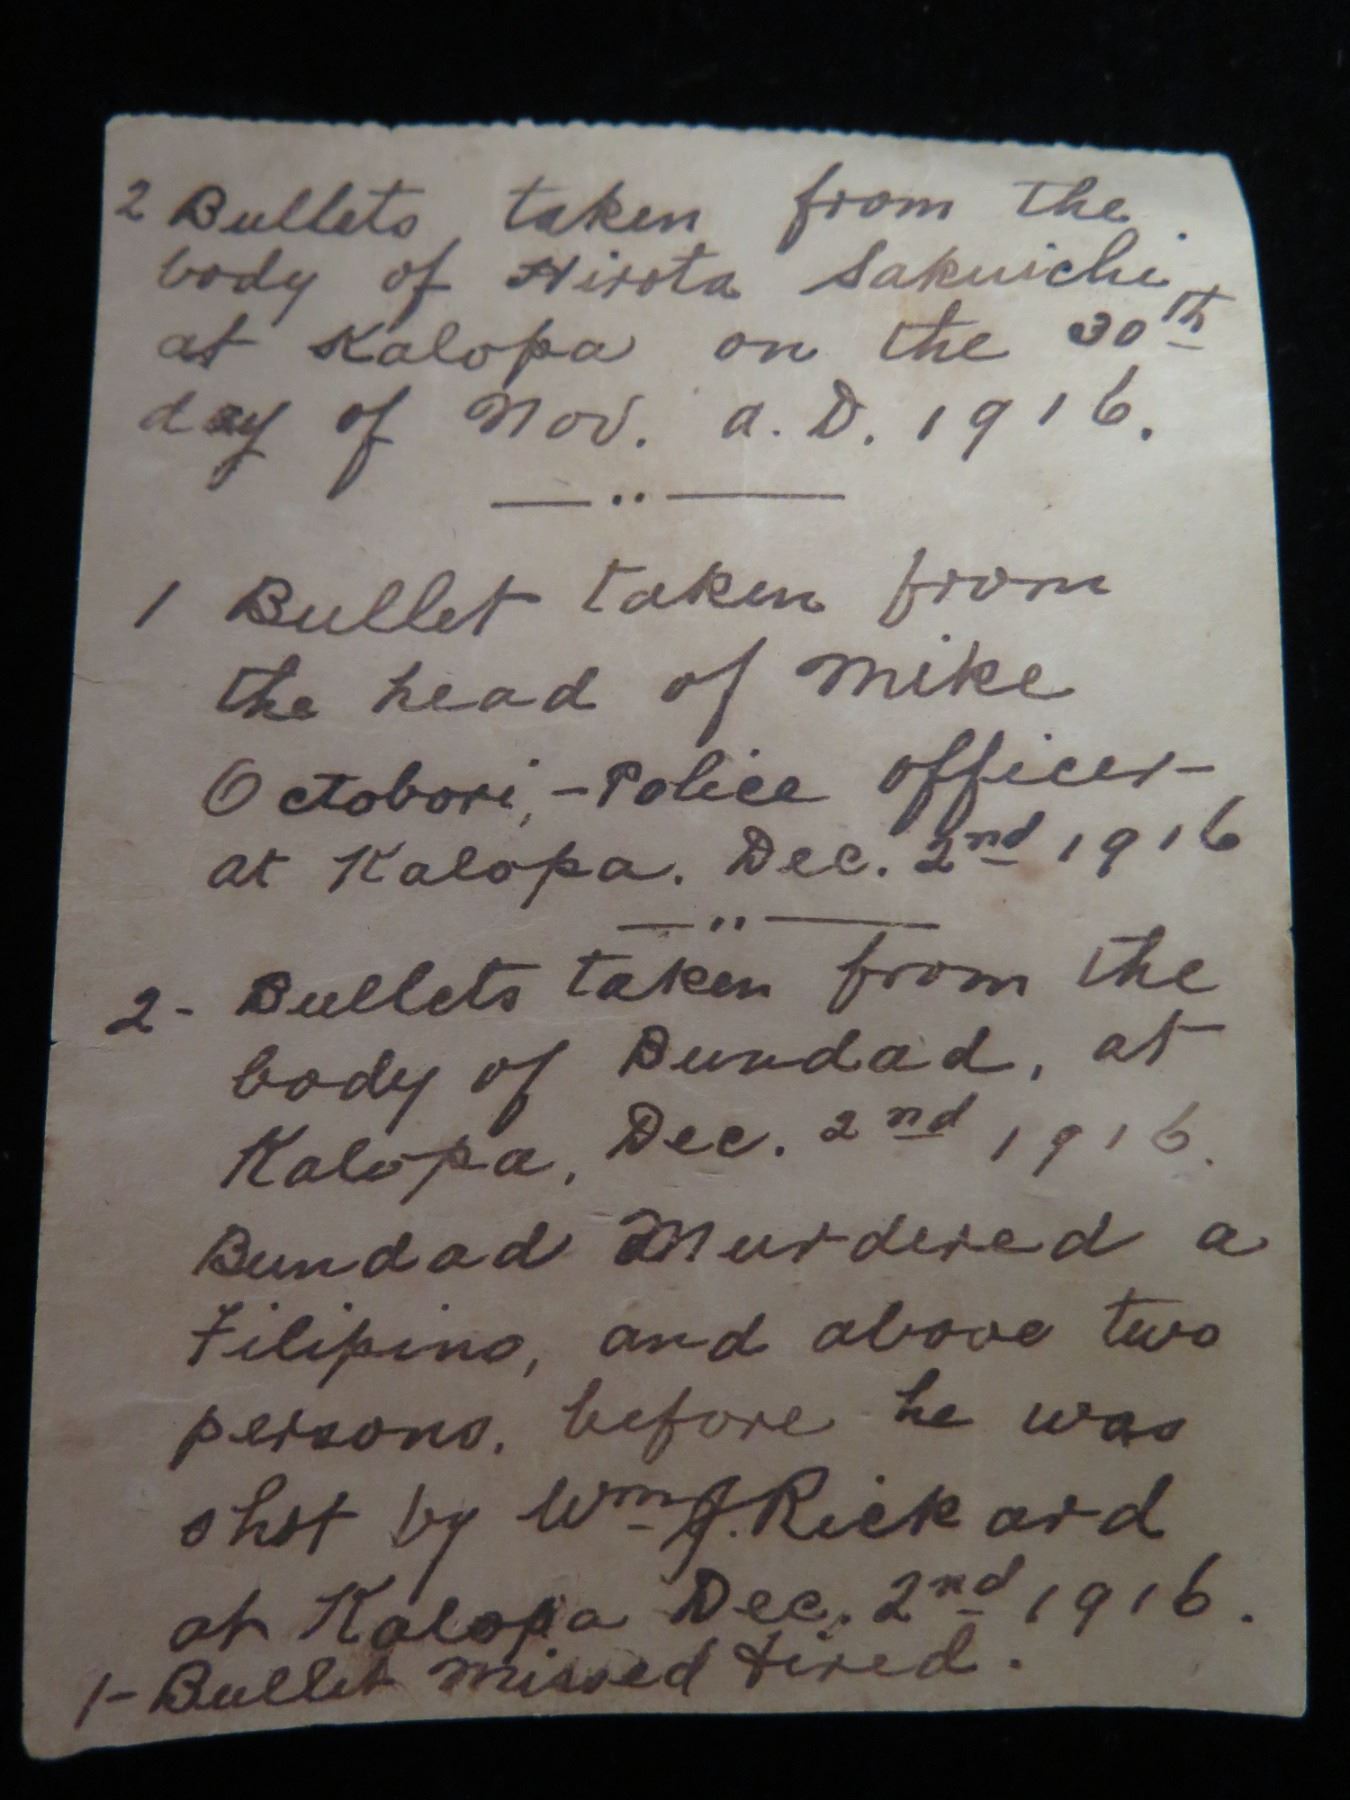 2 Bullets taken from the
body of Hirota Sakuichi
at Kalopa on the 30th
day of Nov. a.D. 1916.
1 Bullet taken from
the head of Mike
Octobori, - Police officer -
at Kalopa. Dec. 2nd 1916
2 - Bullets taken from the
body of Bundad, at
Kalopa, Dec. 2nd 1916.
Bundad Murdered a
Filipino, and above two
persons, before he was
shot by Wm J. Rickard
at Kalopa Dec. 2nd 1916.
1 - Bullet missed fired.